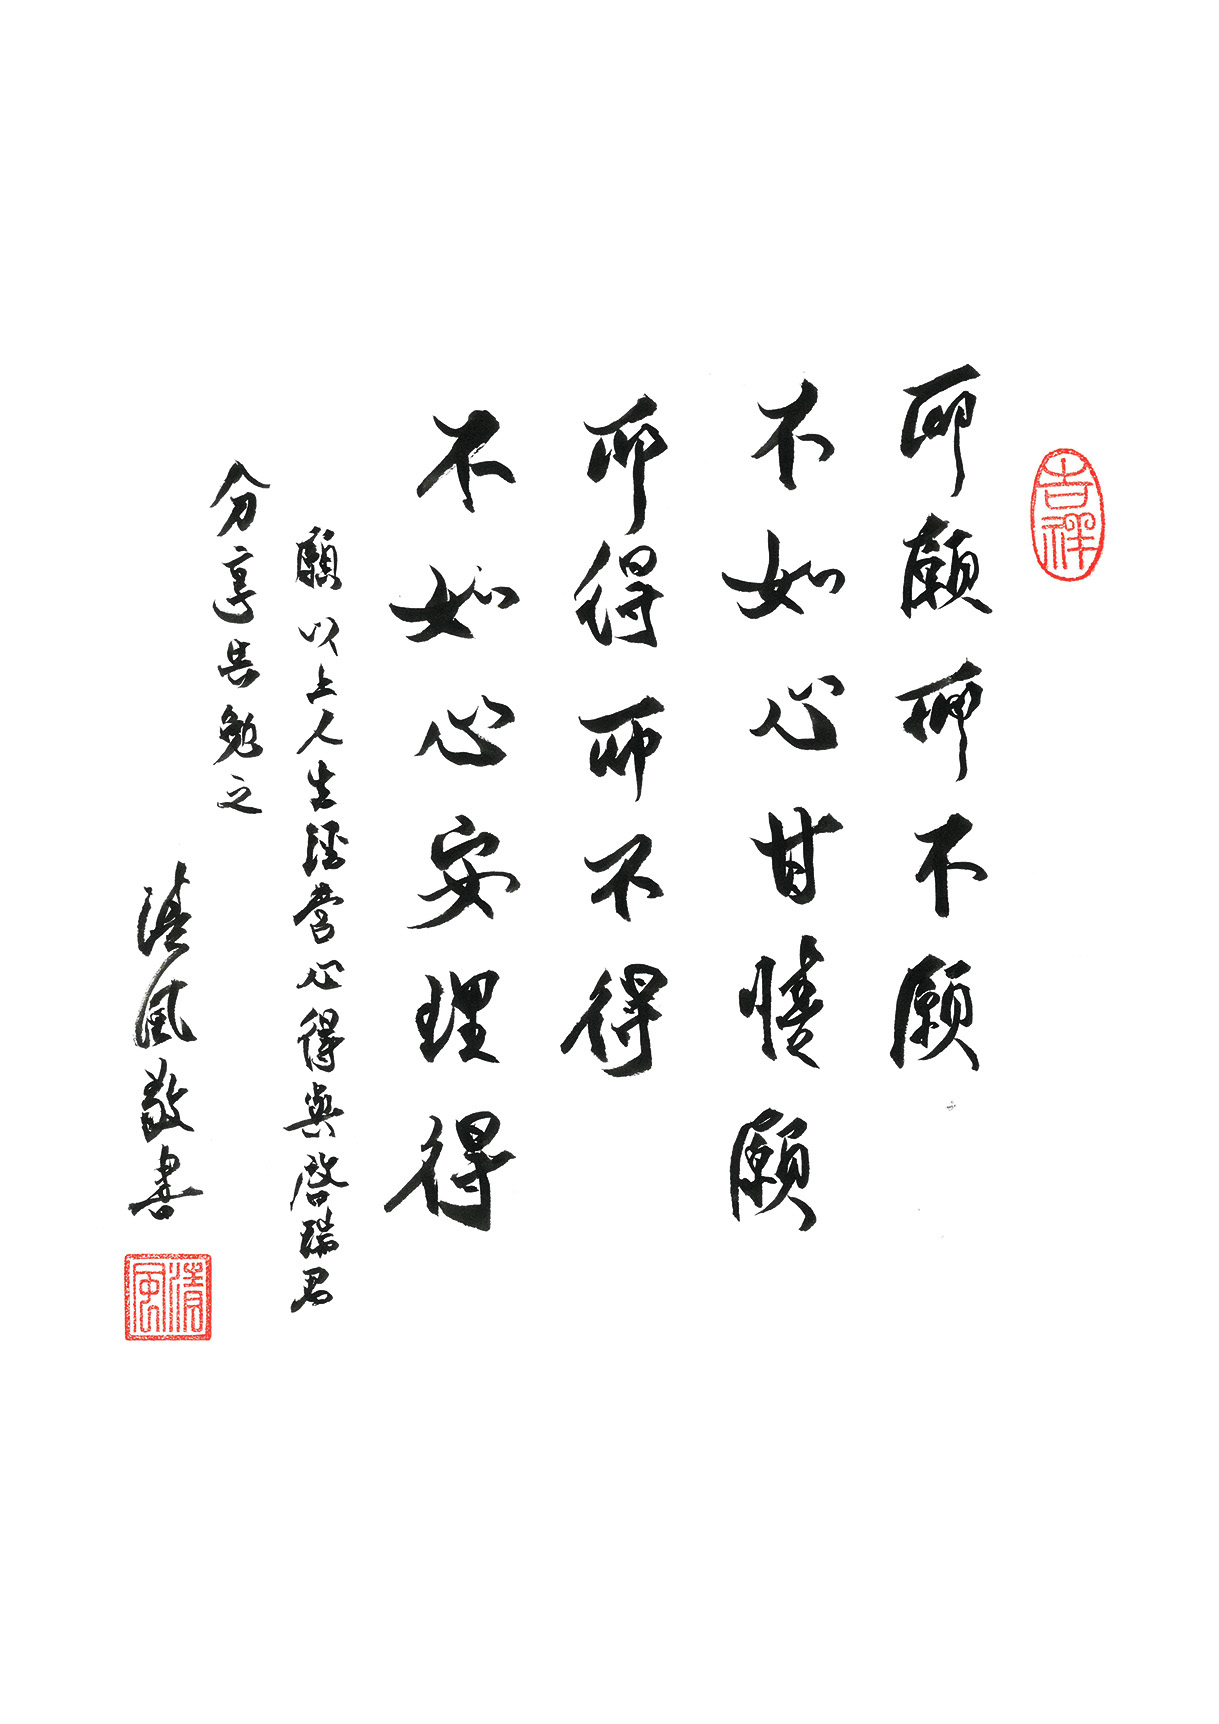 吉祥
所願所不願
不如心甘情願
所得所不得
不如心安理得
願以上人生經營心得與啓瑞君
分享共勉之
清風敬書
清風